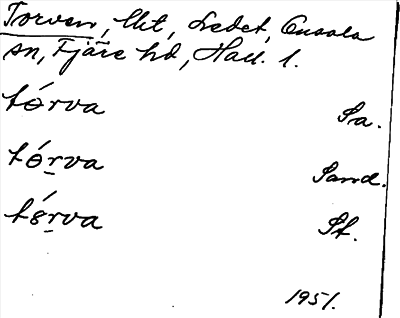 Torven, lht, Ledet, Onsala
sn, Fjäre hd, Hall. l.
tórva Sa.
tórva Sand.
tórva St.
1951.